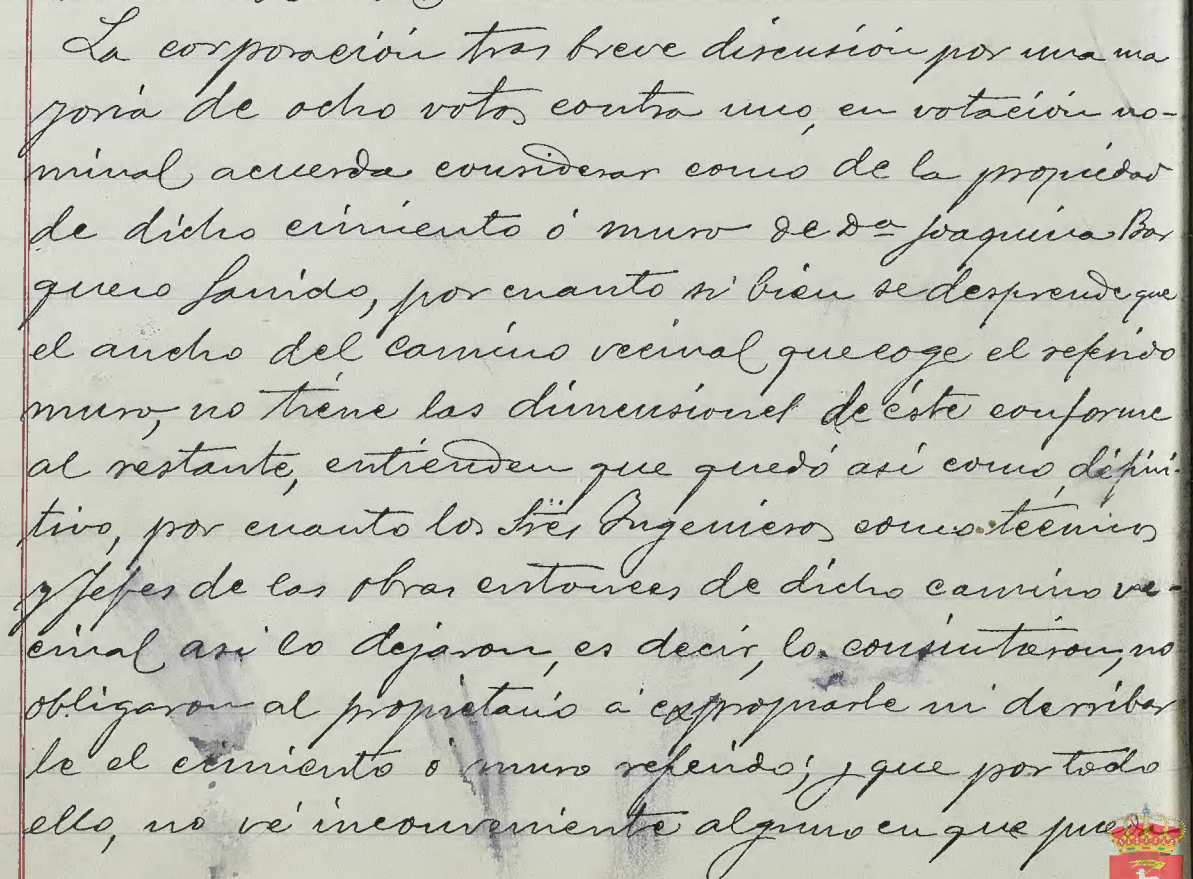 La corporación tras breve discusión por una ma
yoría de ocho votos contra uno, en votación no-
minal acuerda considerar como de la propiedad
de dicho cimiento ó muro de Dª Joaquina Bar
quero Garrido, por cuanto si bien se desprende que
el ancho del camino vecinal que coge el referido
muro, no tiene las dimensiones de éste conforme
al restante, entienden que quedó así como difini-
tivo, por cuanto los Sres Ingenieros como técnicos
y Jefes de las obras entonces de dicho camino ve-
cinal asi lo dejaron, es decir, lo consintieron, no
obligaron al propietario á expropiarle ni derribar
le el cimiento ó muro referido; y que por todo
ello, no vé inconveniente alguno en que